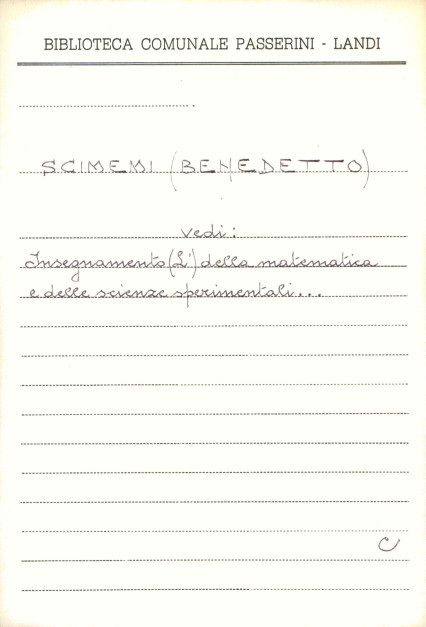 BIBLIOTECA COMUNALE PASSERINI - LANDI
SCIMEMI (BENEDETTO)
vedi:
Insegnamento (L') della matematica
e delle scienze sperimentali...
C